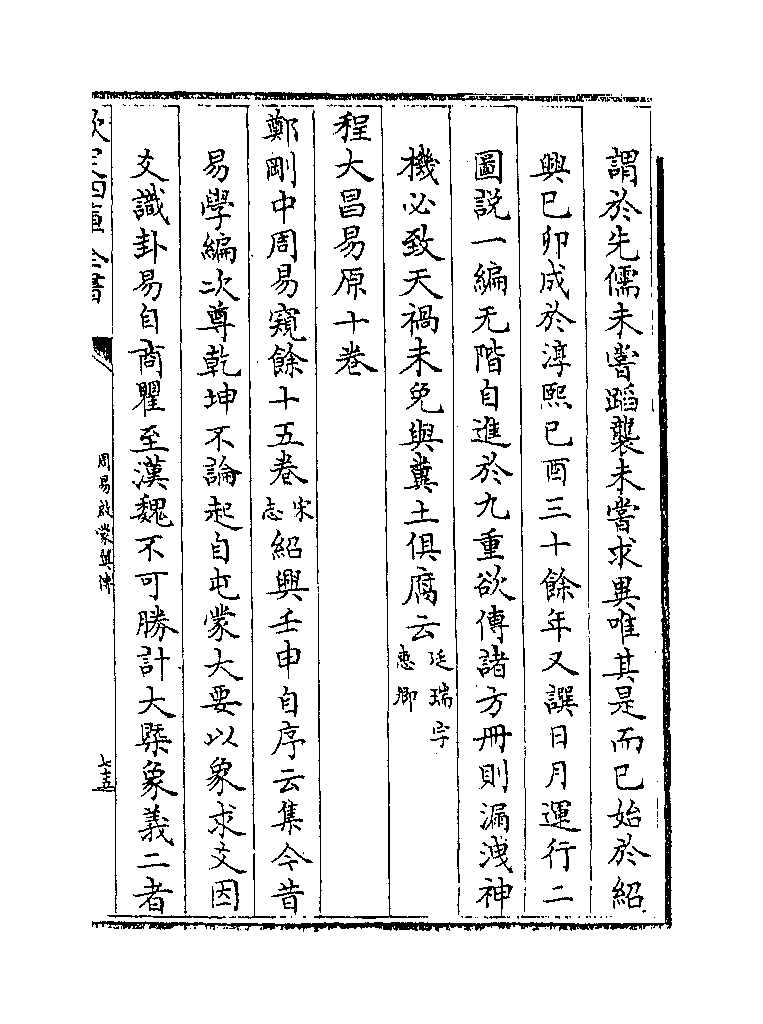 謂於先儒未嘗蹈襲未嘗求異唯其是而已始於紹
興己卯成於淳熙己酉三十餘年又譔日月運行二
圖説一編无階自進於九重欲傳諸方冊則漏洩神
機必致天禍未免與糞土俱腐云廷瑞字惠卿
程大昌易原十卷
鄭剛中周易窺餘十五卷宋志紹興壬申自序云集今昔
易學編次尊乾坤不論起自屯蒙大要以象求爻因
爻識卦易自商瞿至漢魏不可勝計大槩象義二者
欽定四庫全書
周易啟蒙翼傳
七十五